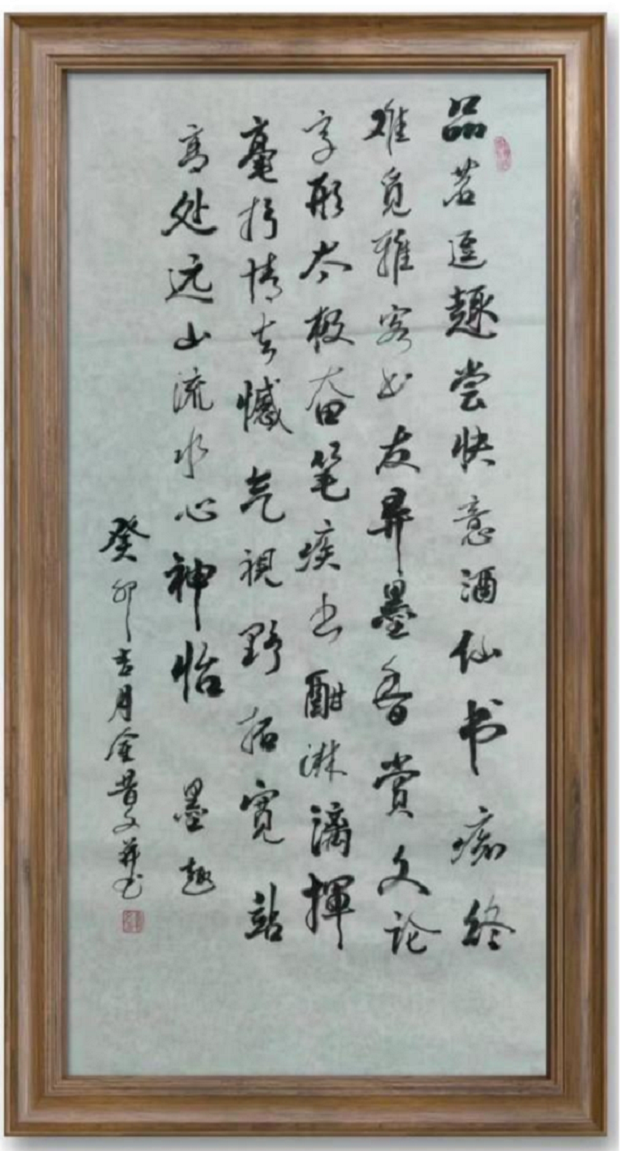 品茗逗趣尝快意酒仙书痴终
难觅雅客
友
墨香赏文论
字形太极奋笔疾书酣淋漓揮
毫抒情去憾
視野拓宽站
高处远山流水心神怡 墨趣
癸卯吉月金
文并书